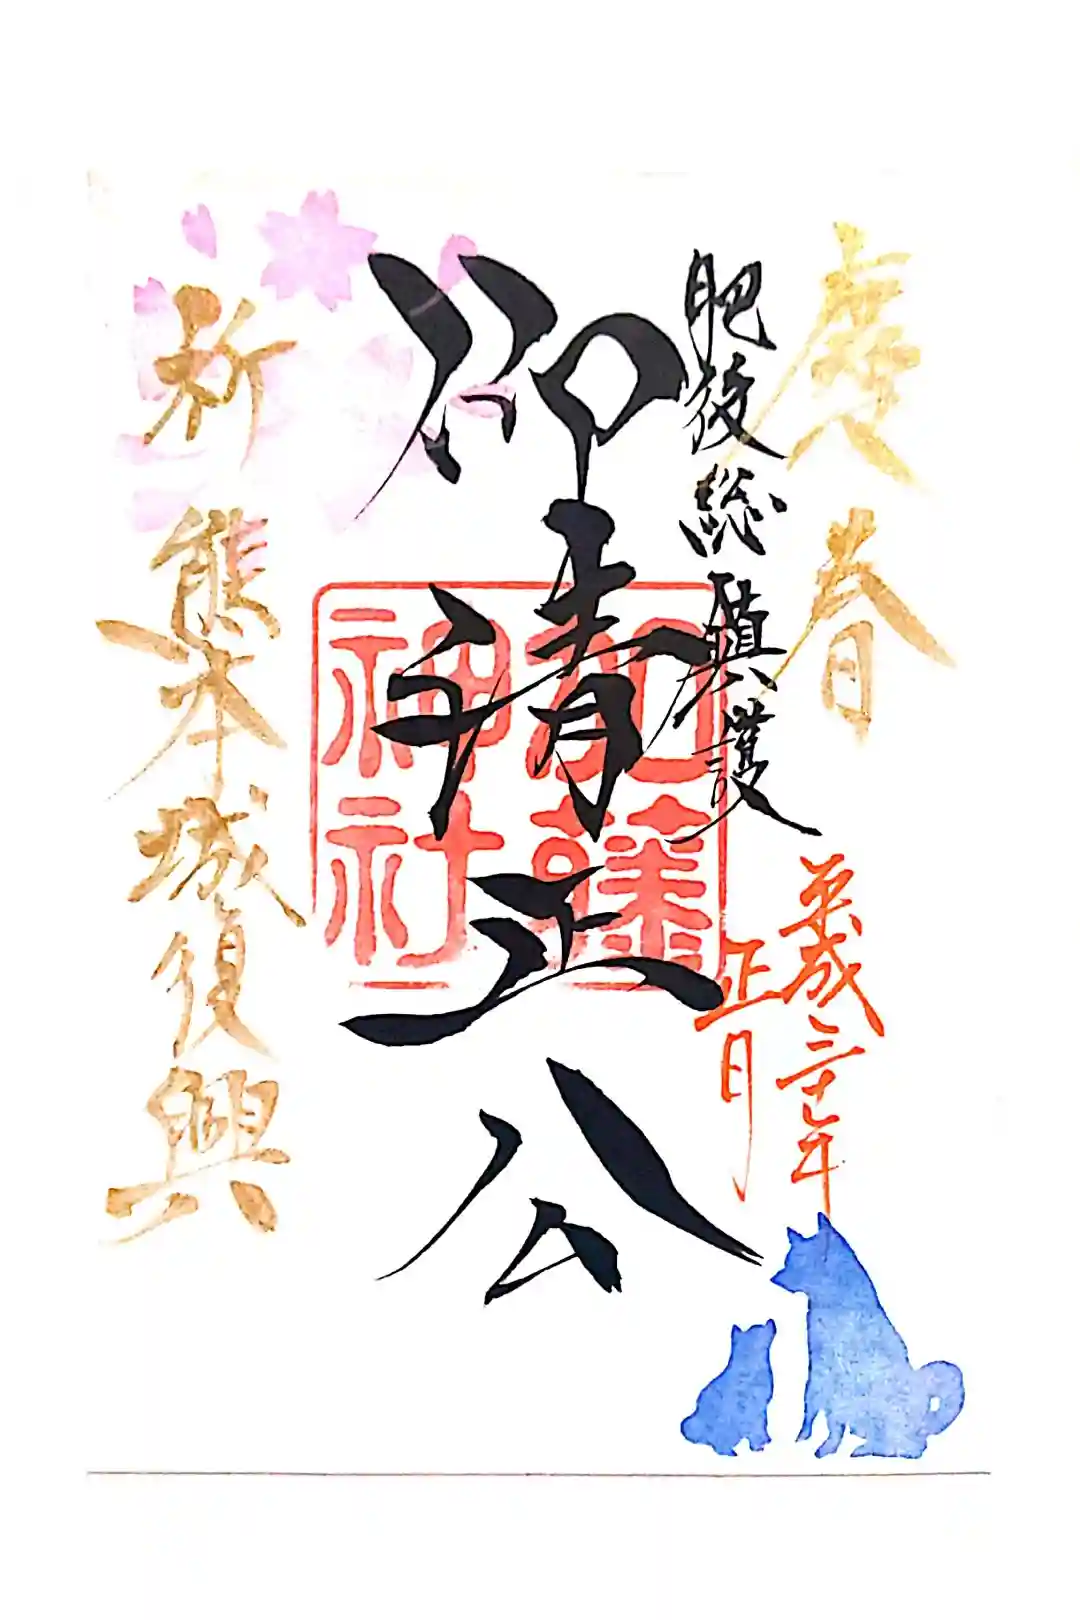 慶春
肥後総鎮護
平成三十年
正月
仰清正公
加藤
神社
祈熊本城復興